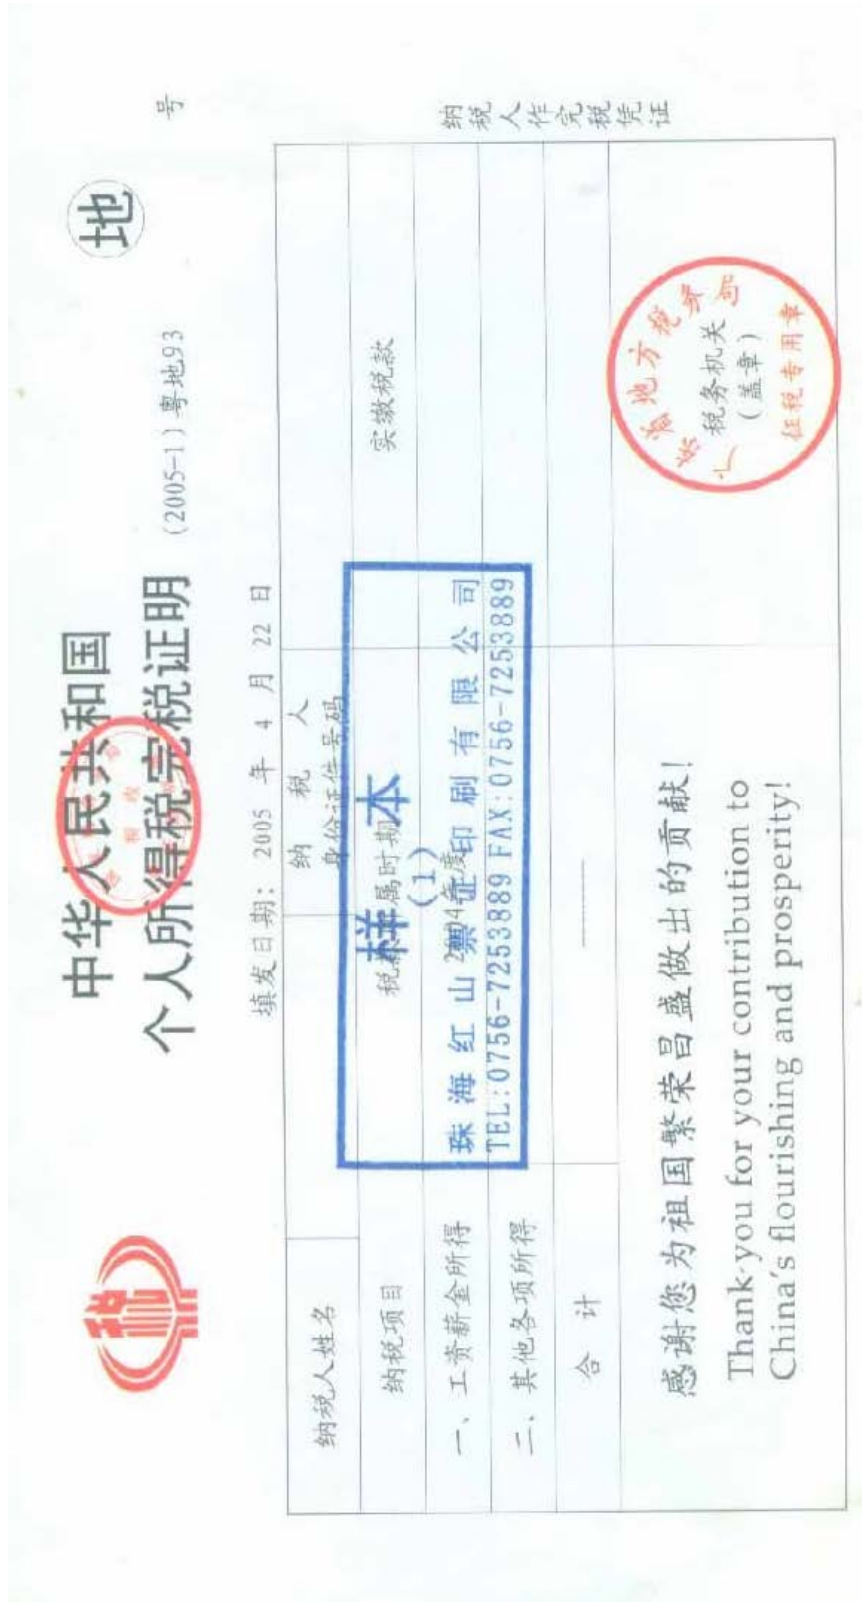 税
中华人民共和国
个人所得税完税证明
地
(2005-1) 粤地93
号
填发日期: 2005 年 4 月 22 日
纳税人姓名
纳 税 人
身份证件号码
纳税项目
税款所属时期
实缴税款
一、工资薪金所得
2004年度
二、其他各项所得
合 计
样 本
(1)
珠海红山票证印刷有限公司
TEL:0756-7253889 FAX:0756-7253889
感谢您为祖国繁荣昌盛做出的贡献!
Thank-you for your contribution to
China's flourishing and prosperity!
地方税务局
税务机关
(盖章)
征税专用章
纳税人作完税凭证